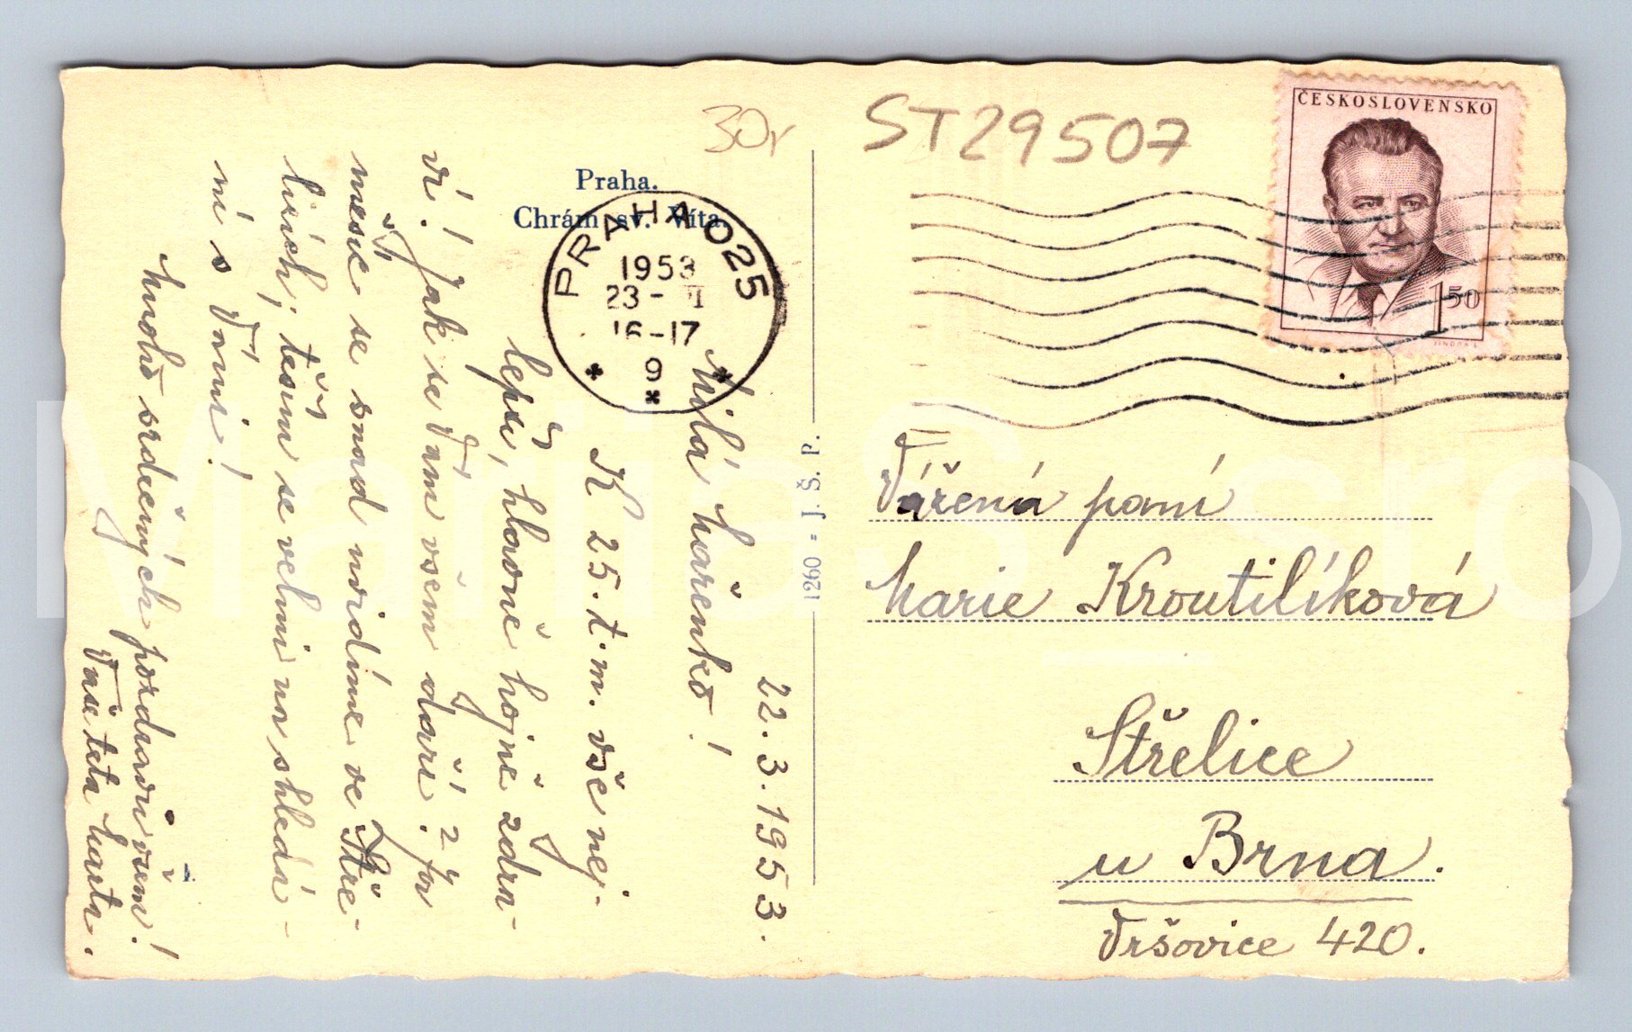 30,-
ST29507
Praha.
Chrám sv. Víta.
PRAHA 025
1953
23-
16-17
9
ČESKOSLOVENSKO
1 50
1260 - J. Š. P.
22. 3. 1953.
Milá Mařenko!
K 25. t. m. vše nej-
lepší, hlavně hojně zdra-
ví! Jak se Vám všem daří? Za
měsíc se snad uvidíme ve Stře-
licích, těším se velmi na shledá-
ní s Vámi!
Mnoho srdečných pozdravů všem!
Vaše teta Marta.
Vážená paní
Marie Kroutilíková
Střelice
u Brna.
Vršovice 420.